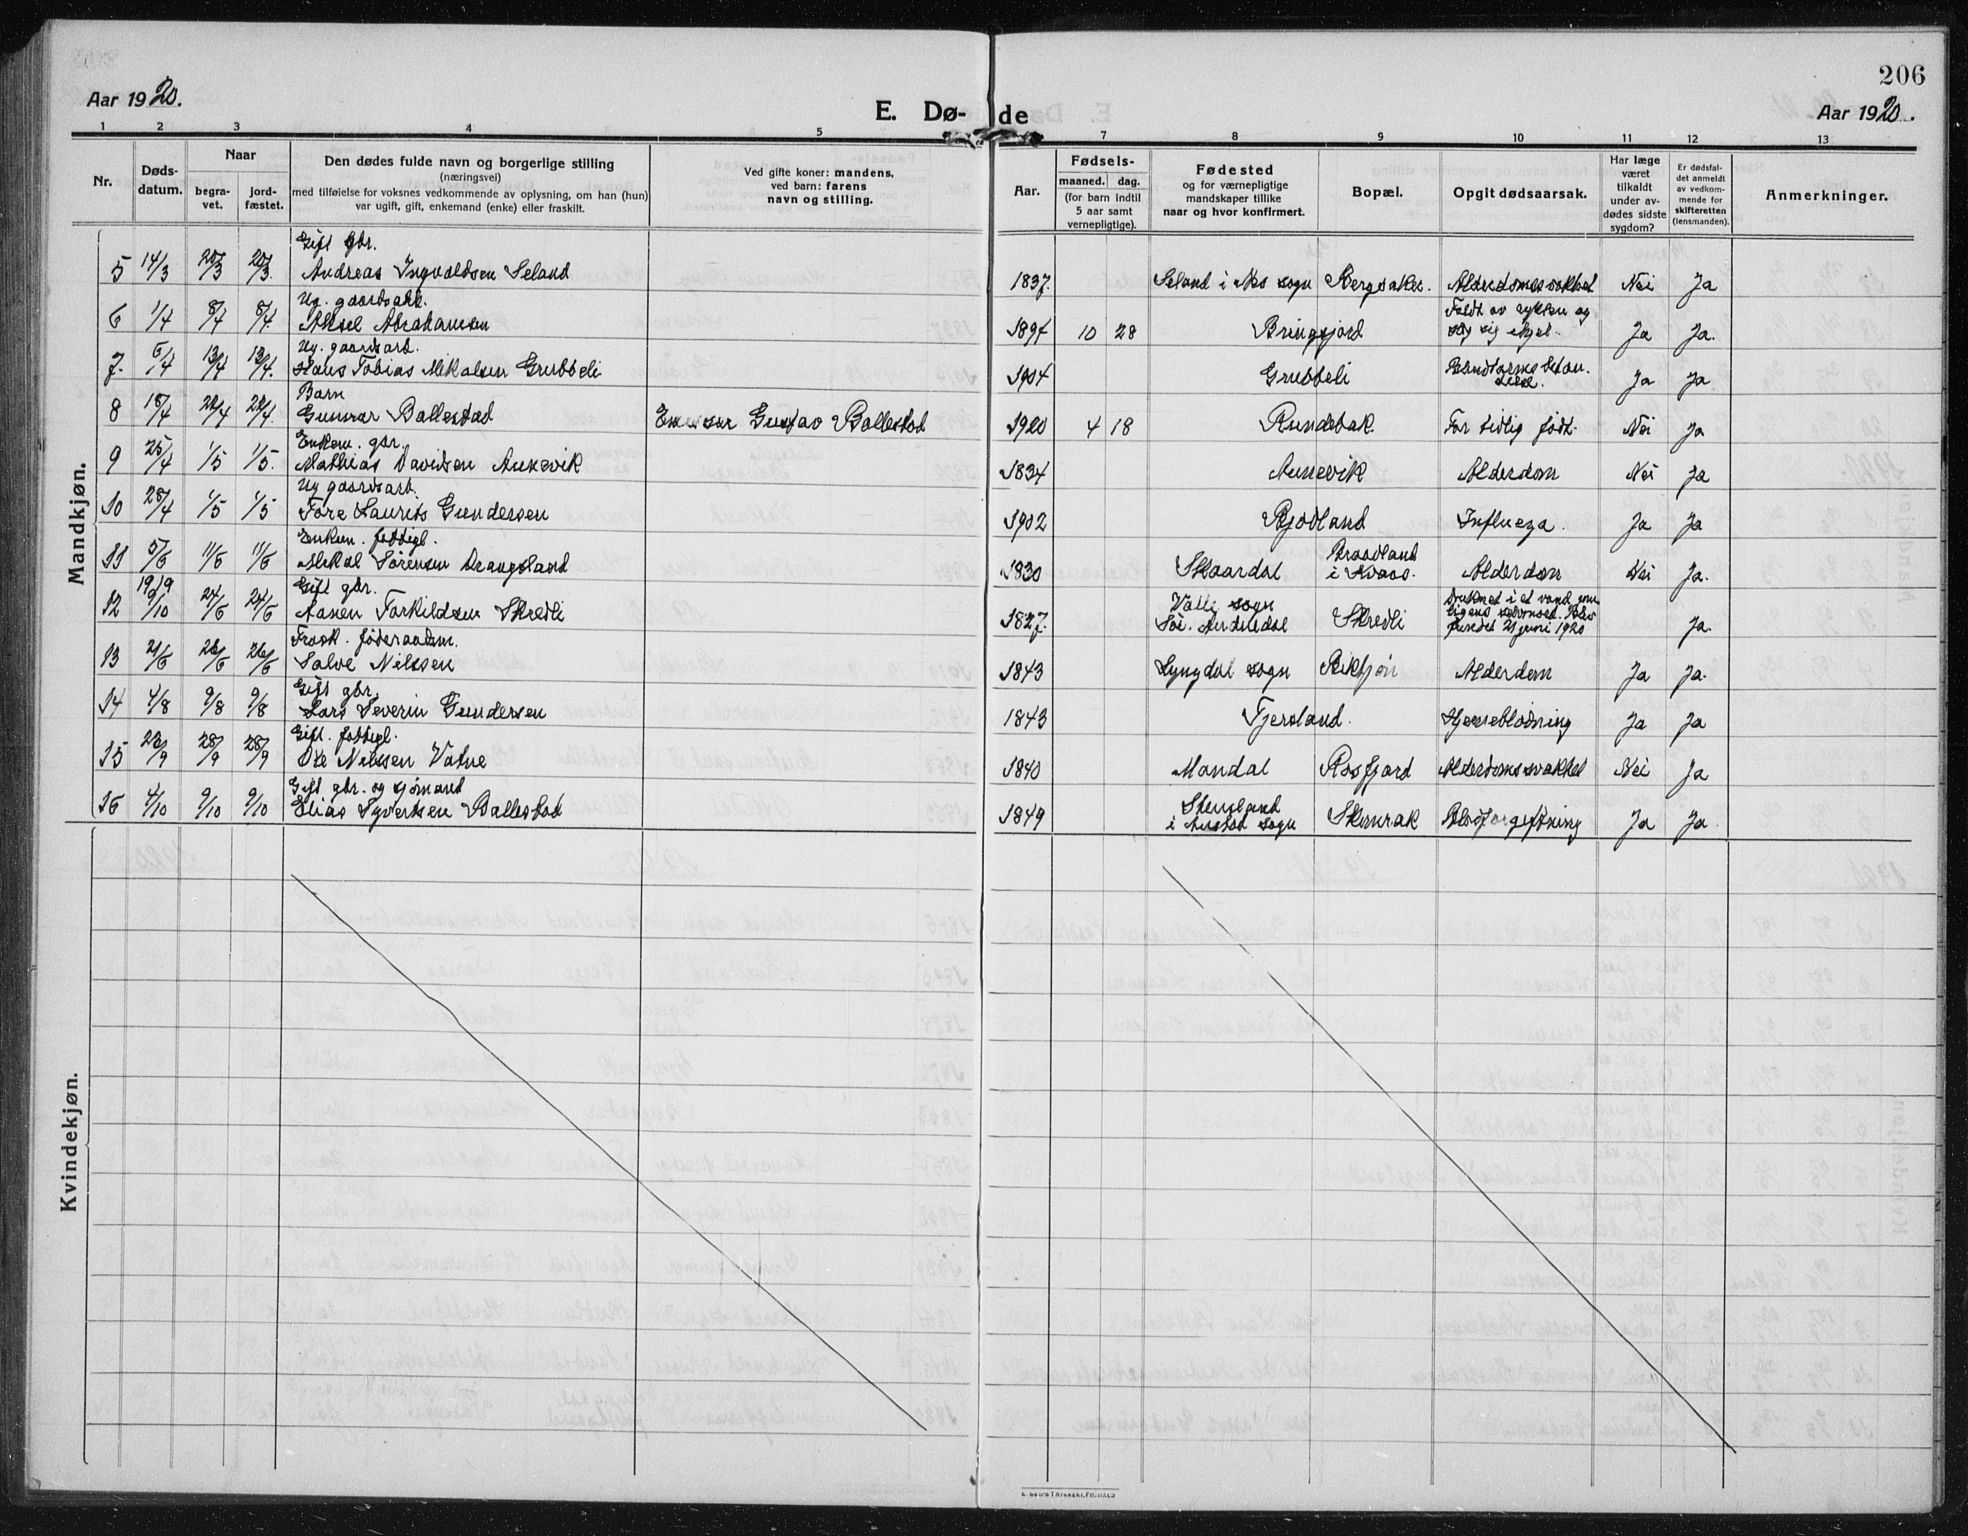 206
Aar 1920.
E. Dø-
de
Aar 1920.
1 2 3 4 5 7 8 9 10 11 12 13
Nr.
Døds-
datum.
Naar
begra-
vet.
jord-
fæstet.
Den dødes fulde navn og borgerlige stilling
(næringsvei)
med tilføielse for voksnes vedkommende av oplysning, om han (hun)
var ugift, gift, enkemand (enke) eller fraskilt.
Ved gifte koner: mandens,
ved barn: farens
navn og stilling.
Aar.
Fødsels-
maaned. dag.
(for barn indtil
5 aar samt
vernepligtige).
Fødested
og for værnepligtige
mandskaper tillike
naar og hvor konfirmert.
Bopæl.
Opgit dødsaarsak.
Har læge
været
tilkaldt
under av-
dødes sidste
sygdom?
Er dødsfal-
det anmeldt
av vedkom-
mende for
skifteretten
(lensmanden).
Anmerkninger.
Mandkjøn.
Gift gbr.
5 14/3 20/3 20/3. Andreas Ingvaldsen Seland 1837. Seland i Nes sogn Bergsaker. Alderdomssvakhet Nei Ja
Ug. gaardsarb.
6 1/4 8/4 8/4. Aksel Abrahamsen 1897 10 28 Bringsjord Faldt av sykken og
slog sig ihjel. Ja Ja.
Ug. gaardsarb.
7. 6/4 13/4 13/4. Hans Tobias Mikalsen Grubbeli 1904 Grubbeli Ja Ja
Barn
8 18/4 22/4 22/4. Gunnar Ballestad Gustav Ballestad 1920 4 18 Rundebak. For tidlig født. Nei Ja
Enkem. gbr.
9 25/4 1/5 1/5. Mathias Davidsen Aunevik 1834 Aunevik Alderdom Nei Ja
Ug gaardsarb.
10 28/4 1/5 1/5 Tore Laurits Gundersen 1902 Rjodland Influeza. Ja Ja
Enkem. fattigl.
11 5/6 11/6 11/6 Mikal Sørensen Drangsland 1830 Skaardal Braadland
i Kvaas. Alderdom Nei Ja.
1919 Gift gbr.
12 2/10 24/6 24/6 Aanen Torkildsen Skredli 1827. Valle sogn
Sø. Audnedal Skredli Druknet i et vand
funedet 21 juni 1920 Ja.
Frask. føderaadsm.
13 21/6 26/6 26/6 Salve Nilssen 1843 Lyngdal sogn Alderdom Ja Ja.
Gift gbr.
14 4/8 9/8 9/8 Lars Severin Gundersen 1843 Tjersland. Hjerneblødning Ja Ja
Gift. fattigl.
15 23/9 28/9 28/9 Ole Nilssen Vatne 1840 Mandal Rosfjord Alderdomssvakhet Nei Ja
Gift gbr. og sjømand
16 4/10 9/10 9/10 Elias Syvertsen Ballestad 1849 Stensland
i Austad sogn Skomrak Blodforgiftning Ja Ja
Kvindekjøn.